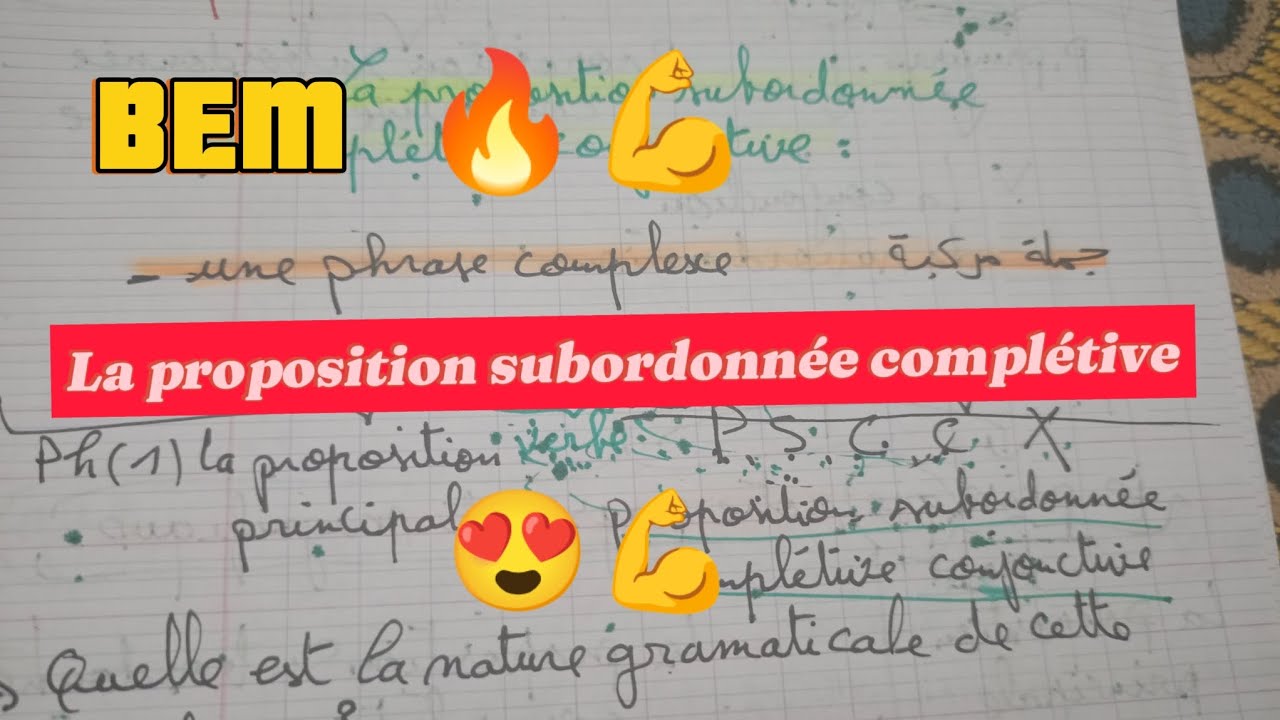 BEM
La proposition subordonnée
complétive conjonctive :
- une phrase complexe جملة مركبة
La proposition subordonnée complétive
Ph(1) la proposition verbe P. S. C. C. X
principal proposition subordonnée
complétive conjonctive
Quelle est la nature gramaticale de cette